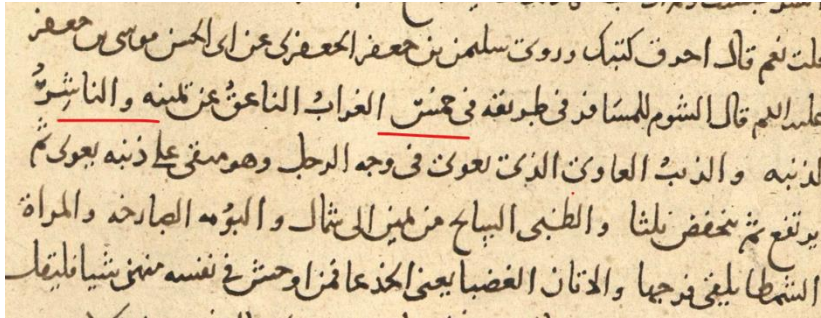 قلت نعم قال احرق كتبك وروى سليمن بن جعفر الجعفرى عن ابى الحسن موسى بن جعفر
عليه السلم قال الشوم للمسافر فى طريقه فى خمس الغراب الناعق عن يمينه والناشر
لذنبه والذئب العاوى الذى يعوى فى وجه الرجل وهو مقعى على ذنبه يعوى ثم
يرتفع ثم ينخفض ثلثا والظبى السايح من يمين الى شمال والبومه الصارخه والمراة
الشمطا تلقى فرجها والاتان العضبا يعنى الجذعا فمن اوجس فى نفسه منهن شيا فليقل